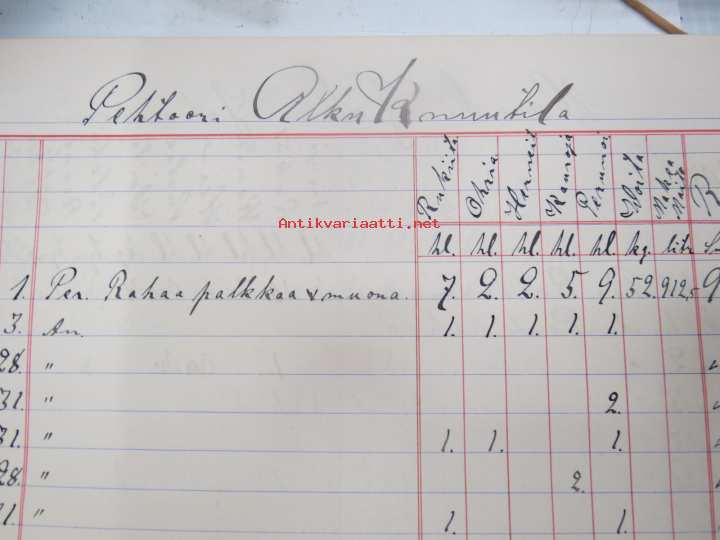 Pehtoori Alku Knuutila
Rukiita Ohria Herneit Kauroja Perunoi Woita Makea Maito R
hl. hl. hl. hl. hl. kg. litr.
Antikvariaatti.net
1. Per. Rahaa palkkaa & muona. 7. 2. 2. 5. 9. 52. 912,5 9
3. An. 1. 1. 1. 1. 1.
28. "
31. " 2.
31. " 1. 1. 1.
28. " 2.
1. " 1. 1.